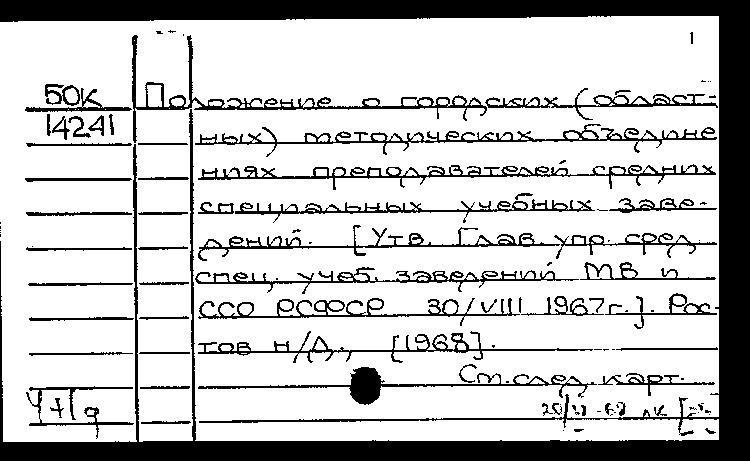 1
50К Положение о городских (област-
14241 ных) методических объедине
ниях преподавателей средних
специальных учебных заве-
дений. [Утв. Глав. упр. сред
спец. учеб. заведений МВ и
ССО РСФСР 30/VIII 1967г.]. Рос-
тов н/Д., [1968].
См. след. карт.